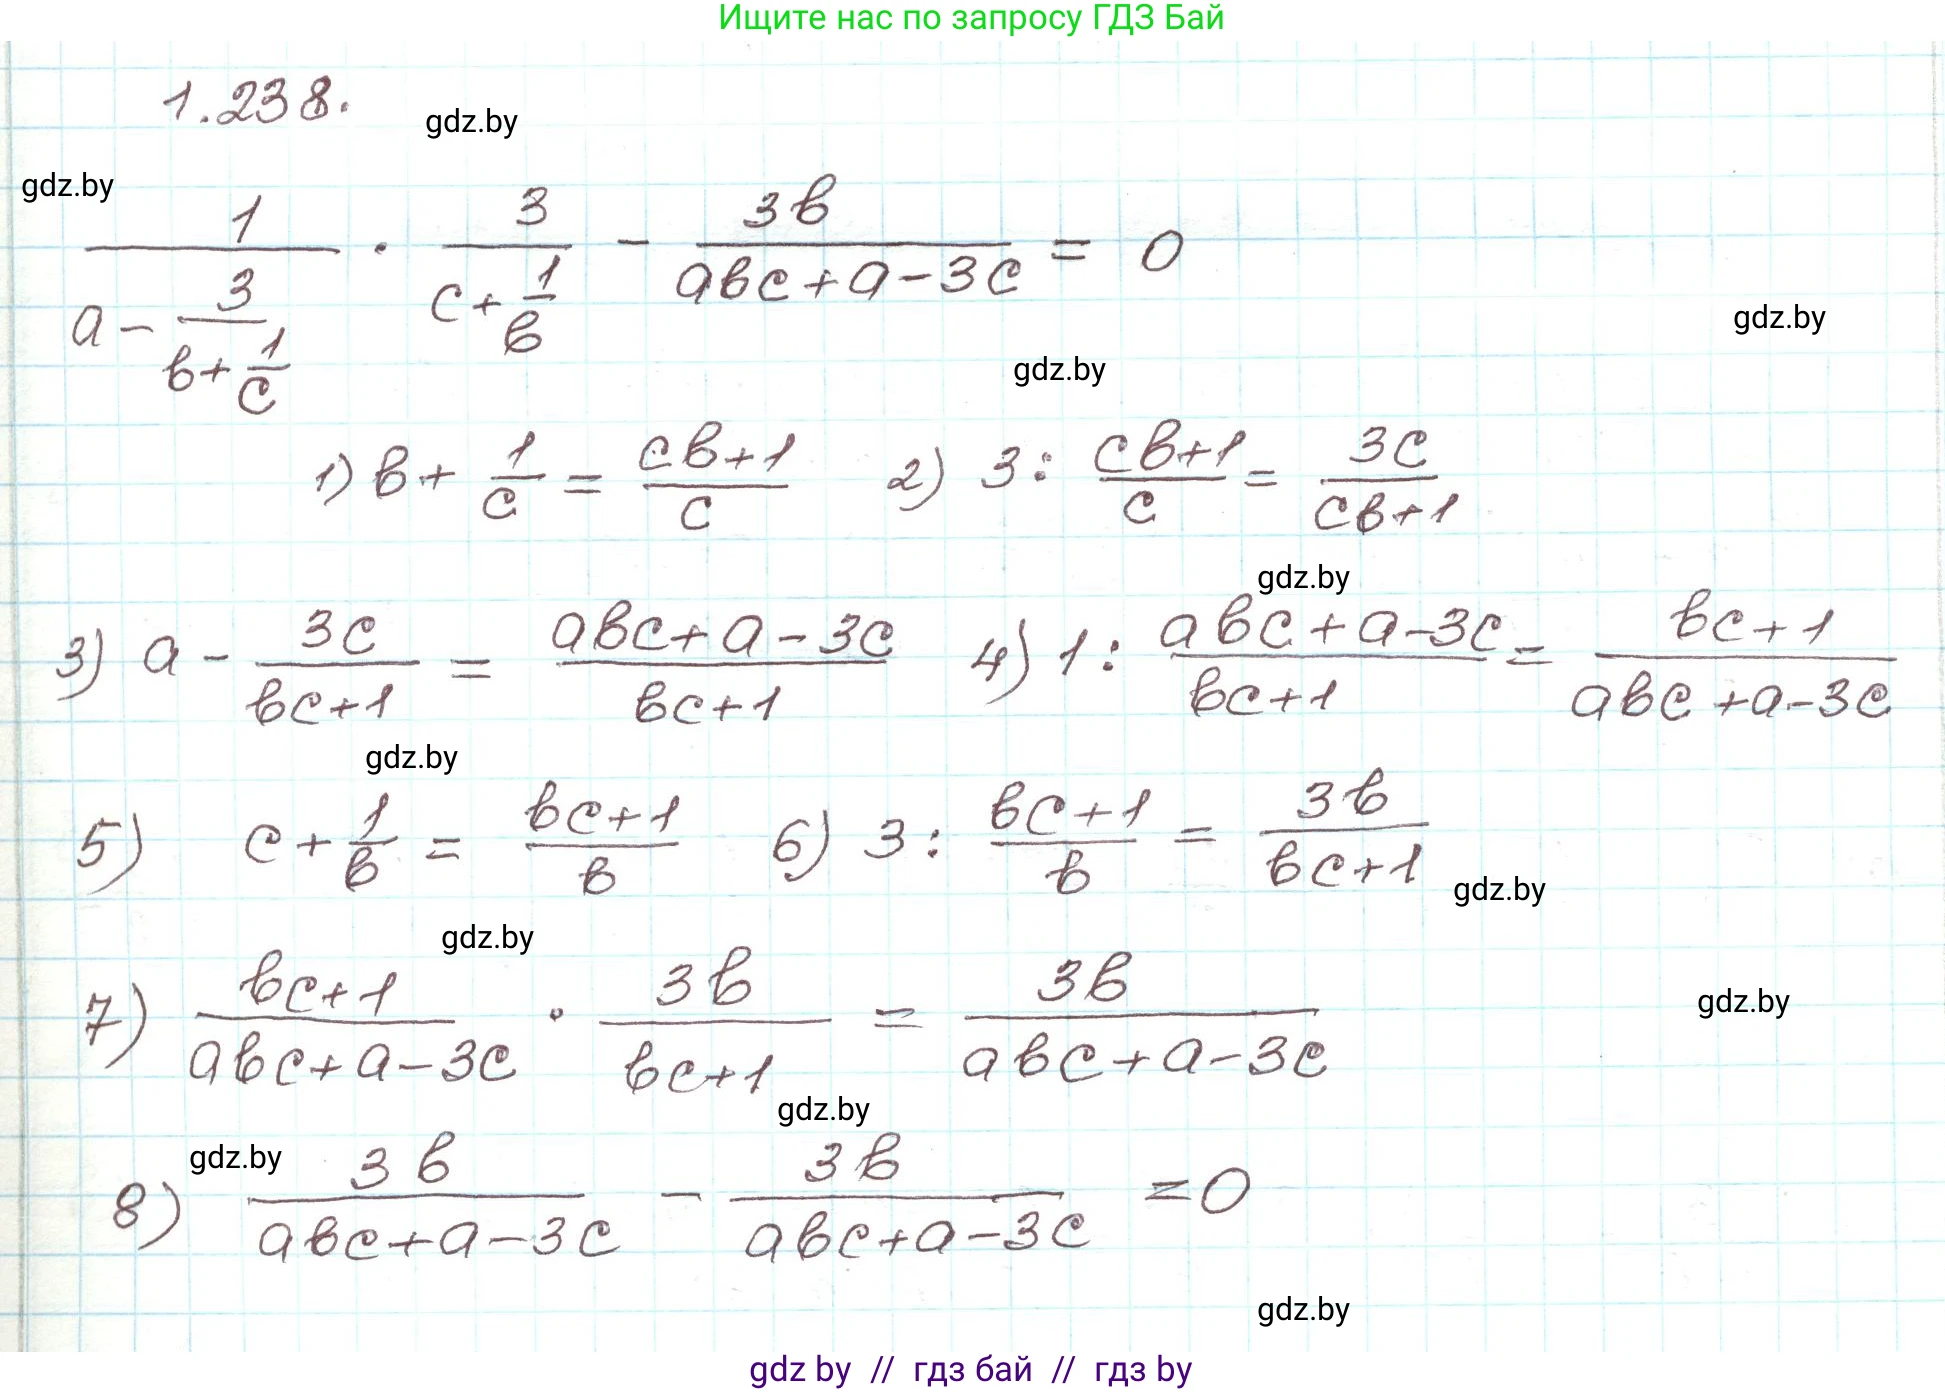 Ищите нас по запросу ГДЗ Бай
1.238.
gdz.by
gdz.by
1/(a - 3/(b + 1/c)) · 3/(c + 1/b) - 3b/(abc + a - 3c) = 0
gdz.by
gdz.by
1) b + 1/c = (cb+1)/c 2) 3 : (cb+1)/c = 3c/(cb+1)
gdz.by
3) a - 3c/(bc+1) = (abc+a-3c)/(bc+1) 4) 1 : (abc+a-3c)/(bc+1) = (bc+1)/(abc+a-3c)
gdz.by
5) c + 1/b = (bc+1)/b 6) 3 : (bc+1)/b = 3b/(bc+1)
gdz.by
gdz.by
7) (bc+1)/(abc+a-3c) · 3b/(bc+1) = 3b/(abc+a-3c)
gdz.by
gdz.by
gdz.by
8) 3b/(abc+a-3c) - 3b/(abc+a-3c) = 0
gdz.by
gdz by // гдз бай // гдз by